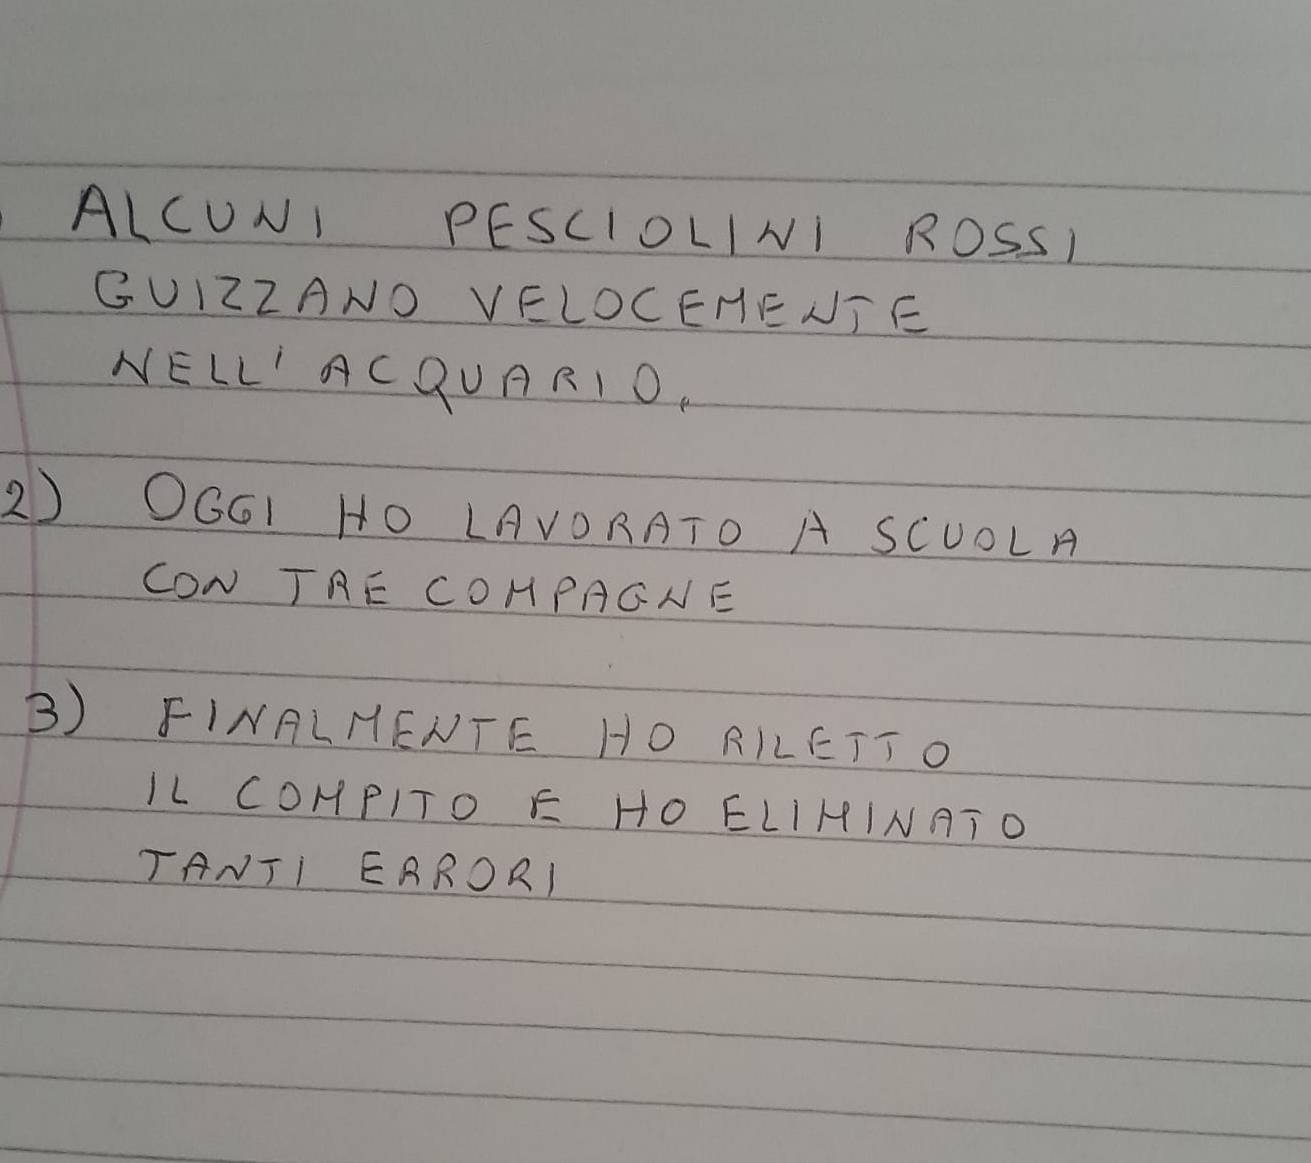 ALCUNI PESCIOLINI ROSSI
GUIZZANO VELOCEMENTE
NELL' ACQUARIO.
2) OGGI HO LAVORATO A SCUOLA
CON TRE COMPAGNE
3) FINALMENTE HO RILETTO
IL COMPITO E HO ELIMINATO
TANTI ERRORI